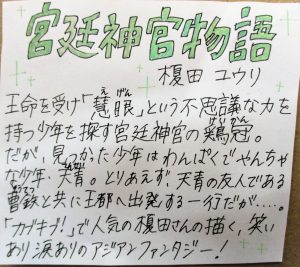 宮廷神官物語
榎田 ユウリ
王命を受け「慧眼」という不思議な力を
えげん
持つ少年を探す宮廷神官の鶏冠。
だが、見つかった少年はわんぱくでやんちゃ
な少年・天青。とりあえず、天青の友人である
曹鉄と共に王都へ出発する一行だが…。
「カブキブ!」で人気の榎田さんの描く、笑い
あり涙ありのアジアンファンタジー!